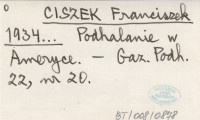 0
CISZEK Franciszek
1934... Podhalanie w
Ameryce. — Gaz. Podh.
22, nr 20.
BT/008/0878